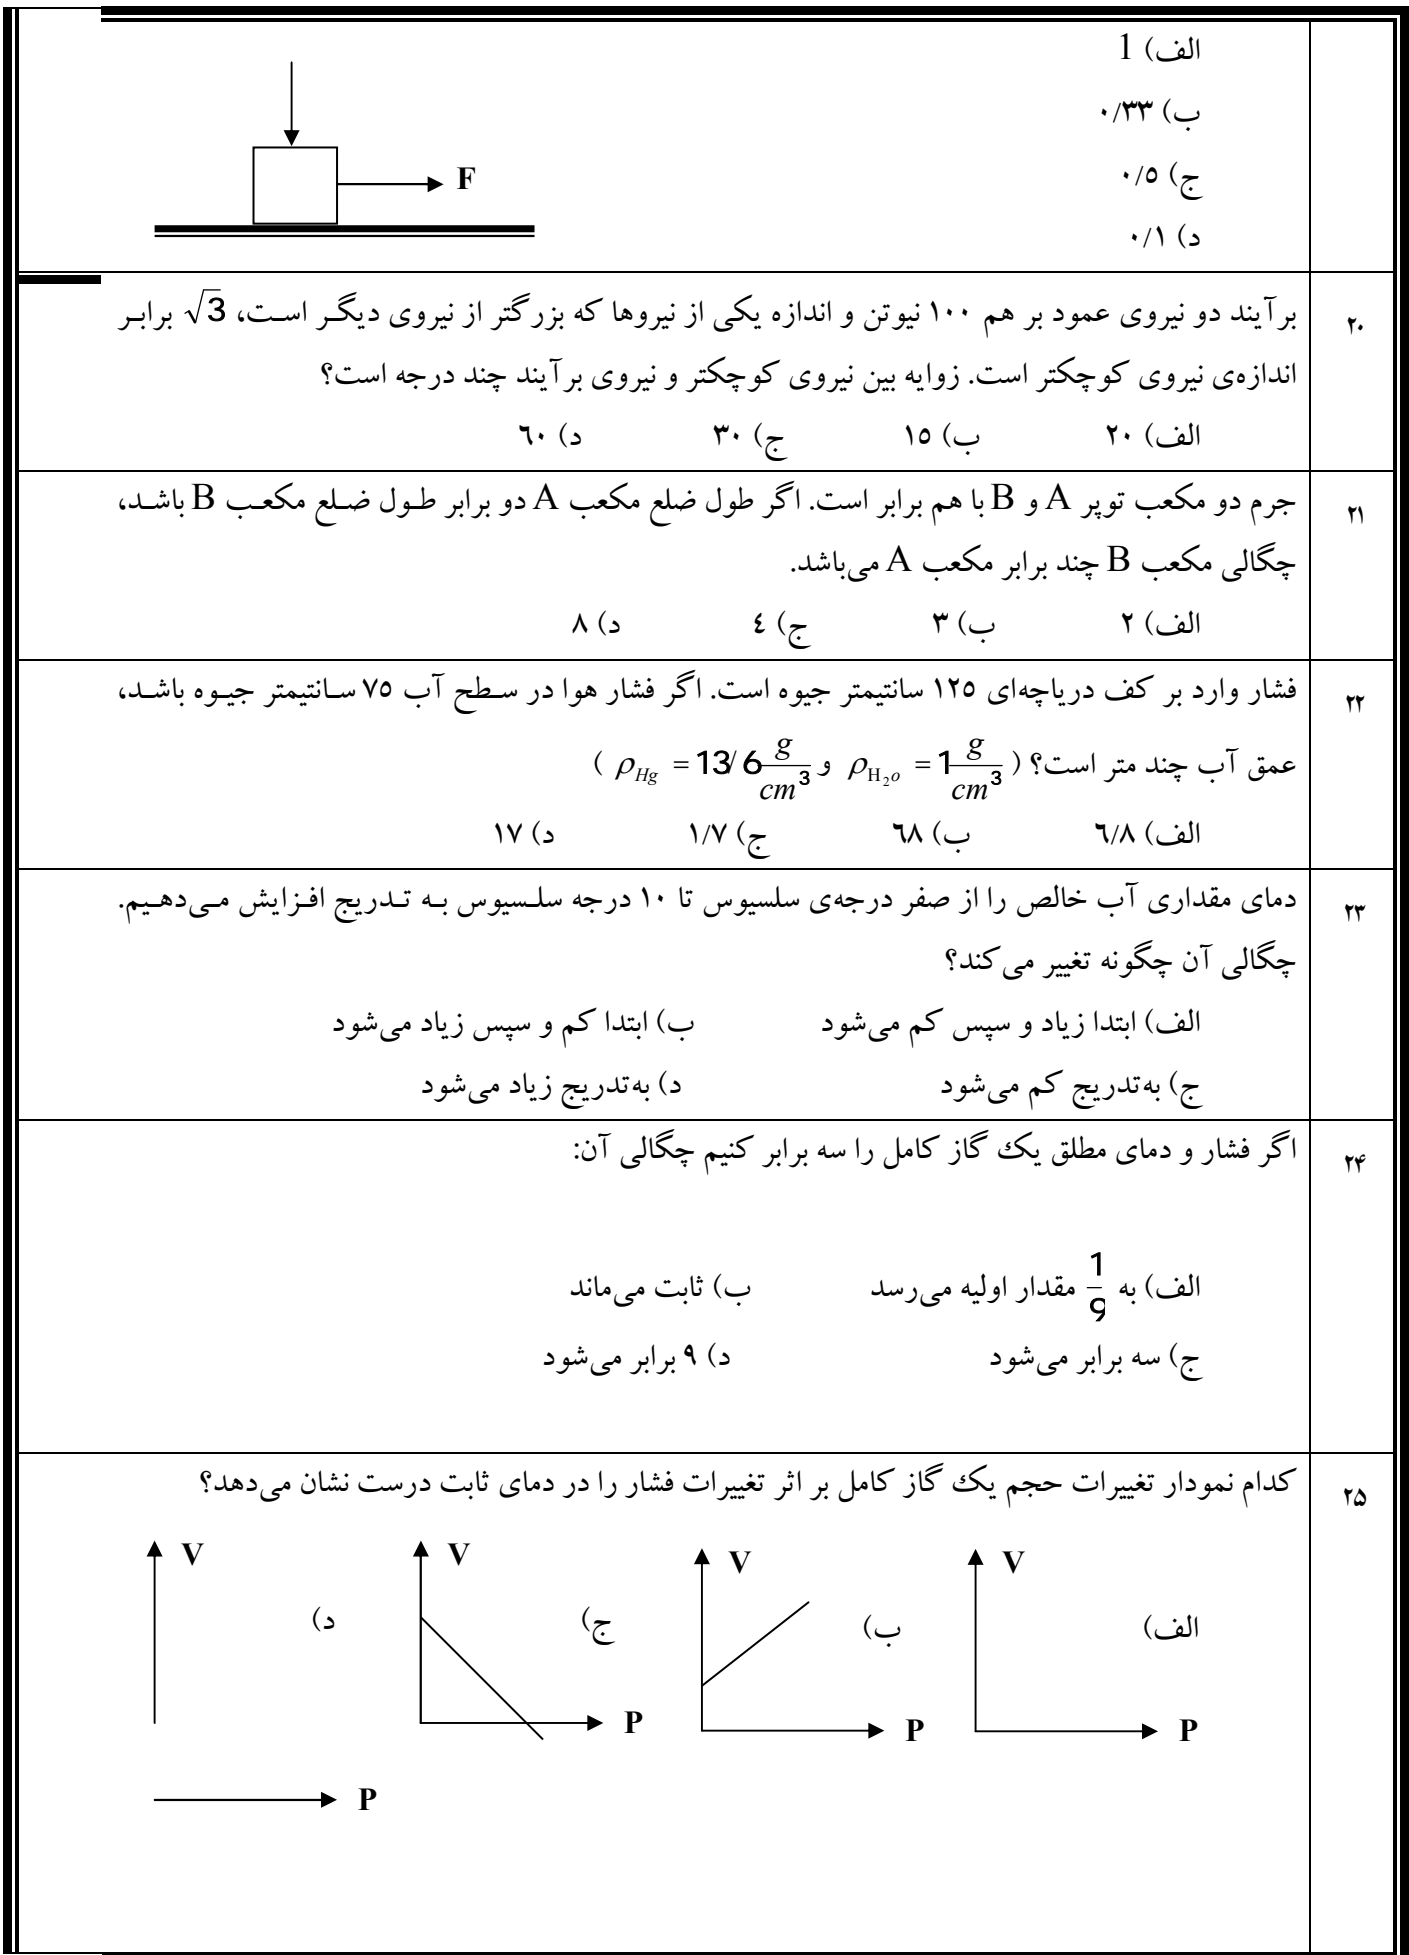 الف) 1
ب) ۰/۳۳
ج) ۰/۵
د) ۰/۱
F
۲۰
برآیند دو نیروی عمود بر هم ۱۰۰ نیوتن و اندازه یکی از نیروها که بزرگتر از نیروی دیگر است، √3 برابر
اندازه‌ی نیروی کوچکتر است. زوایه بین نیروی کوچکتر و نیروی برآیند چند درجه است؟
الف) ۲۰ ب) ۱۵ ج) ۳۰ د) ۶۰
۲۱
جرم دو مکعب توپر A و B با هم برابر است. اگر طول ضلع مکعب A دو برابر طول ضلع مکعب B باشد،
چگالی مکعب B چند برابر مکعب A می‌باشد.
الف) ۲ ب) ۳ ج) ٤ د) ۸
۲۲
فشار وارد بر کف دریاچه‌ای ۱۲۵ سانتیمتر جیوه است. اگر فشار هوا در سطح آب ۷۵ سانتیمتر جیوه باشد،
عمق آب چند متر است؟ ( ρ_{H₂o} = 1 g/cm³ و ρ_{Hg} = 13/6 g/cm³ )
الف) ۶/۸ ب) ۶۸ ج) ۱/۷ د) ۱۷
۲۳
دمای مقداری آب خالص را از صفر درجه‌ی سلسیوس تا ۱۰ درجه سلسیوس به تدریج افزایش می‌دهیم.
چگالی آن چگونه تغییر می‌کند؟
الف) ابتدا زیاد و سپس کم می‌شود ب) ابتدا کم و سپس زیاد می‌شود
ج) به‌تدریج کم می‌شود د) به‌تدریج زیاد می‌شود
۲۴
اگر فشار و دمای مطلق یک گاز کامل را سه برابر کنیم چگالی آن:
الف) به 1/9 مقدار اولیه می‌رسد ب) ثابت می‌ماند
ج) سه برابر می‌شود د) ۹ برابر می‌شود
۲۵
کدام نمودار تغییرات حجم یک گاز کامل بر اثر تغییرات فشار را در دمای ثابت درست نشان می‌دهد؟
V V V V
الف) ب) ج) د)
P P P
P